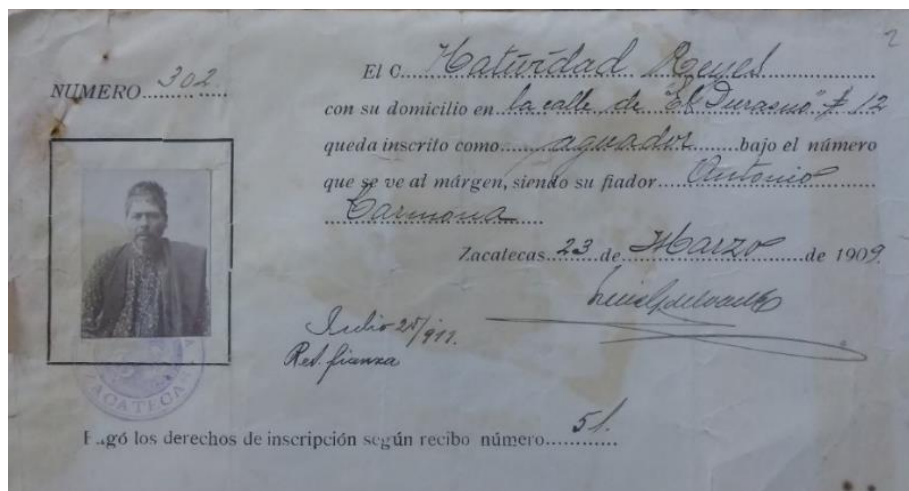 2
NUMERO 302.
El C. Natividad Reyes
con su domicilio en la calle de "El Durasno" # 12
queda inscrito como aguador bajo el número
que se ve al márgen, siendo su fiador Antonio
Carmona
Zacatecas 23 de Marzo de 1909.
Julio 25/911.
Ret. fianza
ZACATECAS
Pagó los derechos de inscripción según recibo número 51.